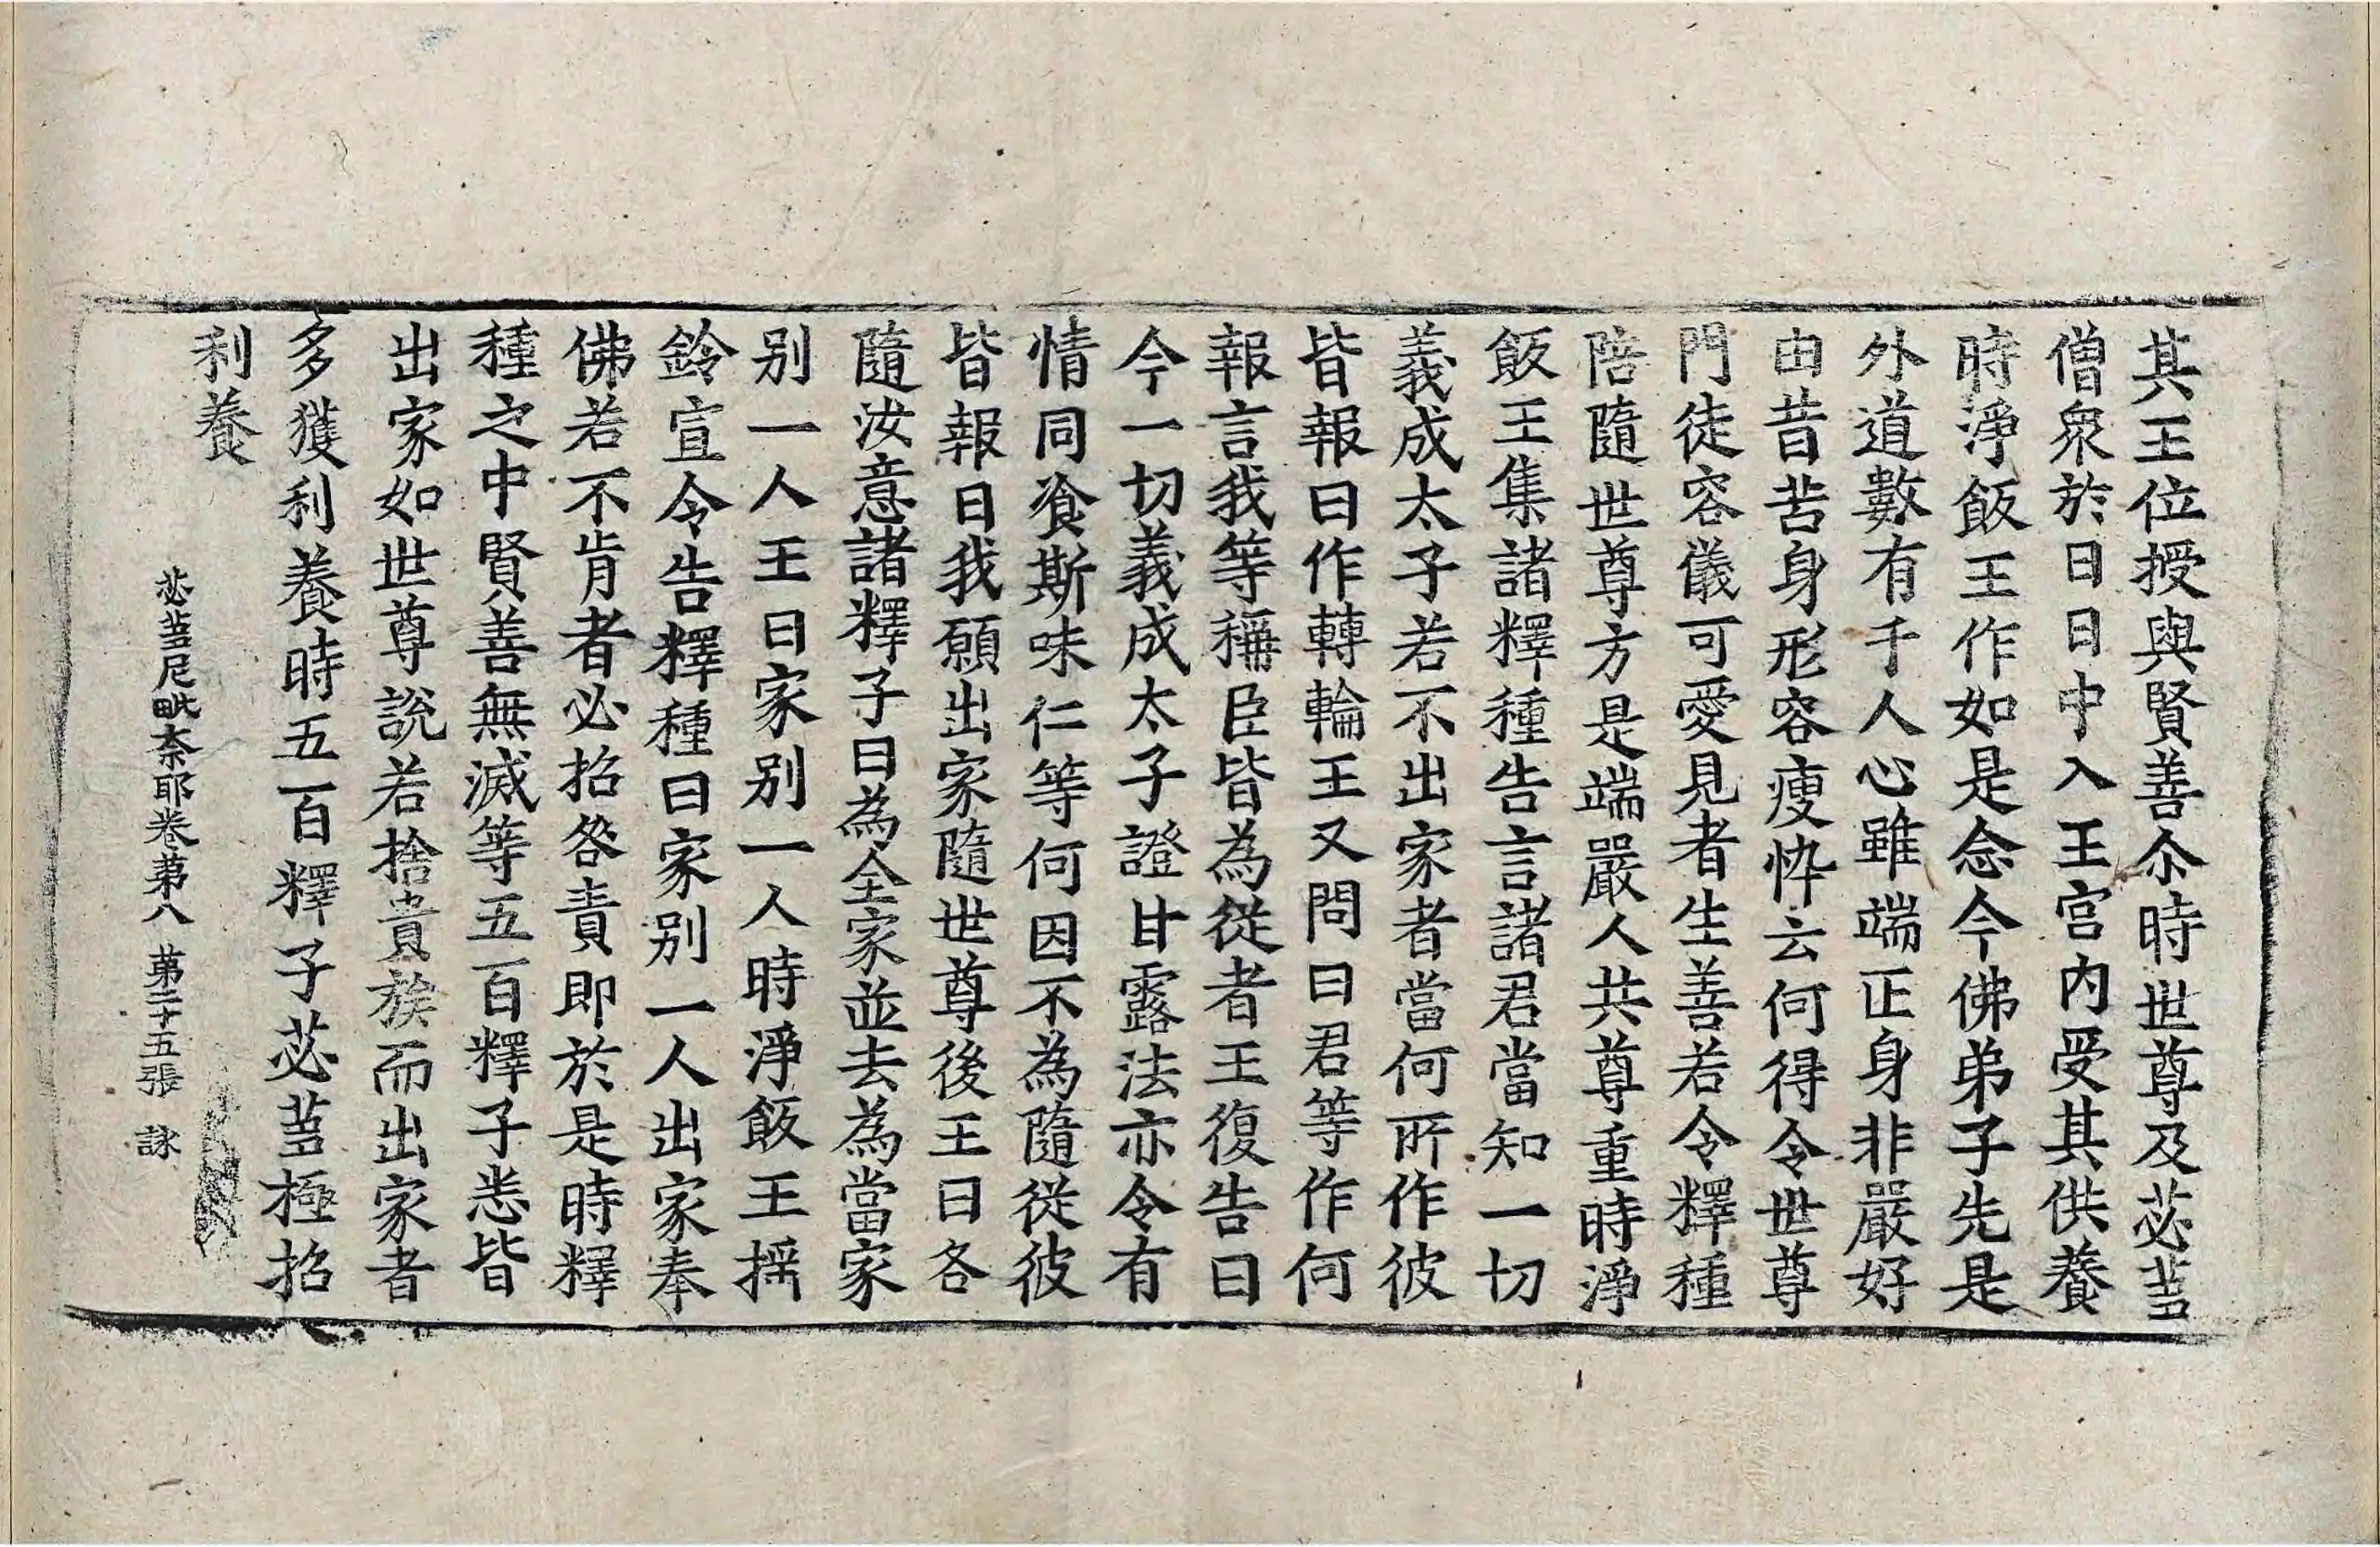 其王位授與賢善尒時世尊及苾蒭
僧衆於日日中入王宫内受其供養
時淨飯王作如是念今佛弟子先是
外道數有千人心雖端正身非嚴好
由昔苦身形容瘦悴云何得令世尊
門徒容儀可愛見者生善若令釋種
陪隨世尊方是端嚴人共尊重時淨
飯王集諸釋種告言諸君當知一切
義成太子若不出家者當何所作彼
皆報曰作轉輪王又問曰君等作何
報言我等稱臣皆為從者王復告曰
今一切義成太子證甘露法亦令有
情同飡斯味仁等何因不為隨從彼
皆報曰我願出家隨世尊後王曰各
隨汝意諸釋子曰為全家並去為當家
别一人王曰家别一人時淨飯王摇
鈴宣令告釋種曰家别一人出家奉
佛若不肯者必招咎責即於是時釋
種之中賢善無滅等五百釋子悉皆
出家如世尊説若捨貴族而出家者
多獲利養時五百釋子苾蒭極招
利養
苾蒭尼毗奈耶卷第八 第二十五張 詠